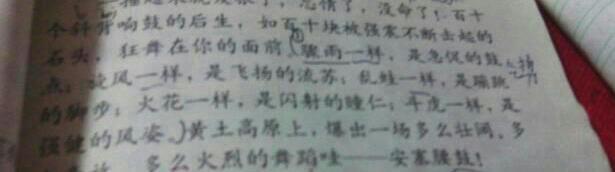 一捶起来就发狠了，忘情了，没命了！百十
个斜背响鼓的后生，如百十块被强震不断击起的
石头，狂舞在你的面前。骤雨一样，是急促的鼓
点；旋风一样，是飞扬的流苏；乱蛙一样，是蹦跳
的脚步；火花一样，是闪射的瞳仁；斗虎一样，是
强健的风姿。黄土高原上，爆出一场多么壮阔、多
多么火烈的舞蹈哇——安塞腰鼓！